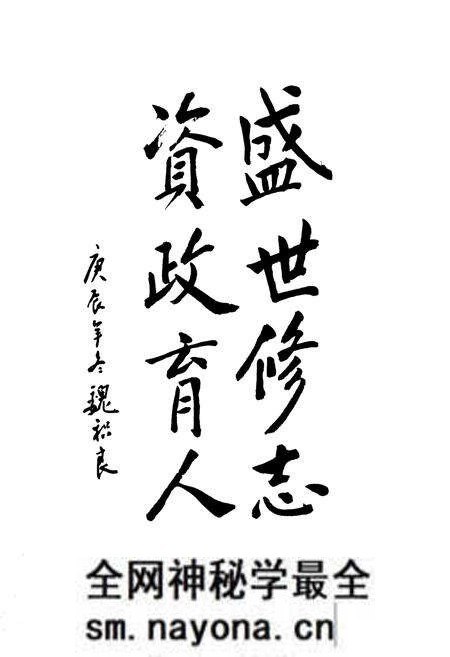 盛世修志
資政育人
庚辰年冬魏裕良
全网神秘学最全
sm.nayona.cn